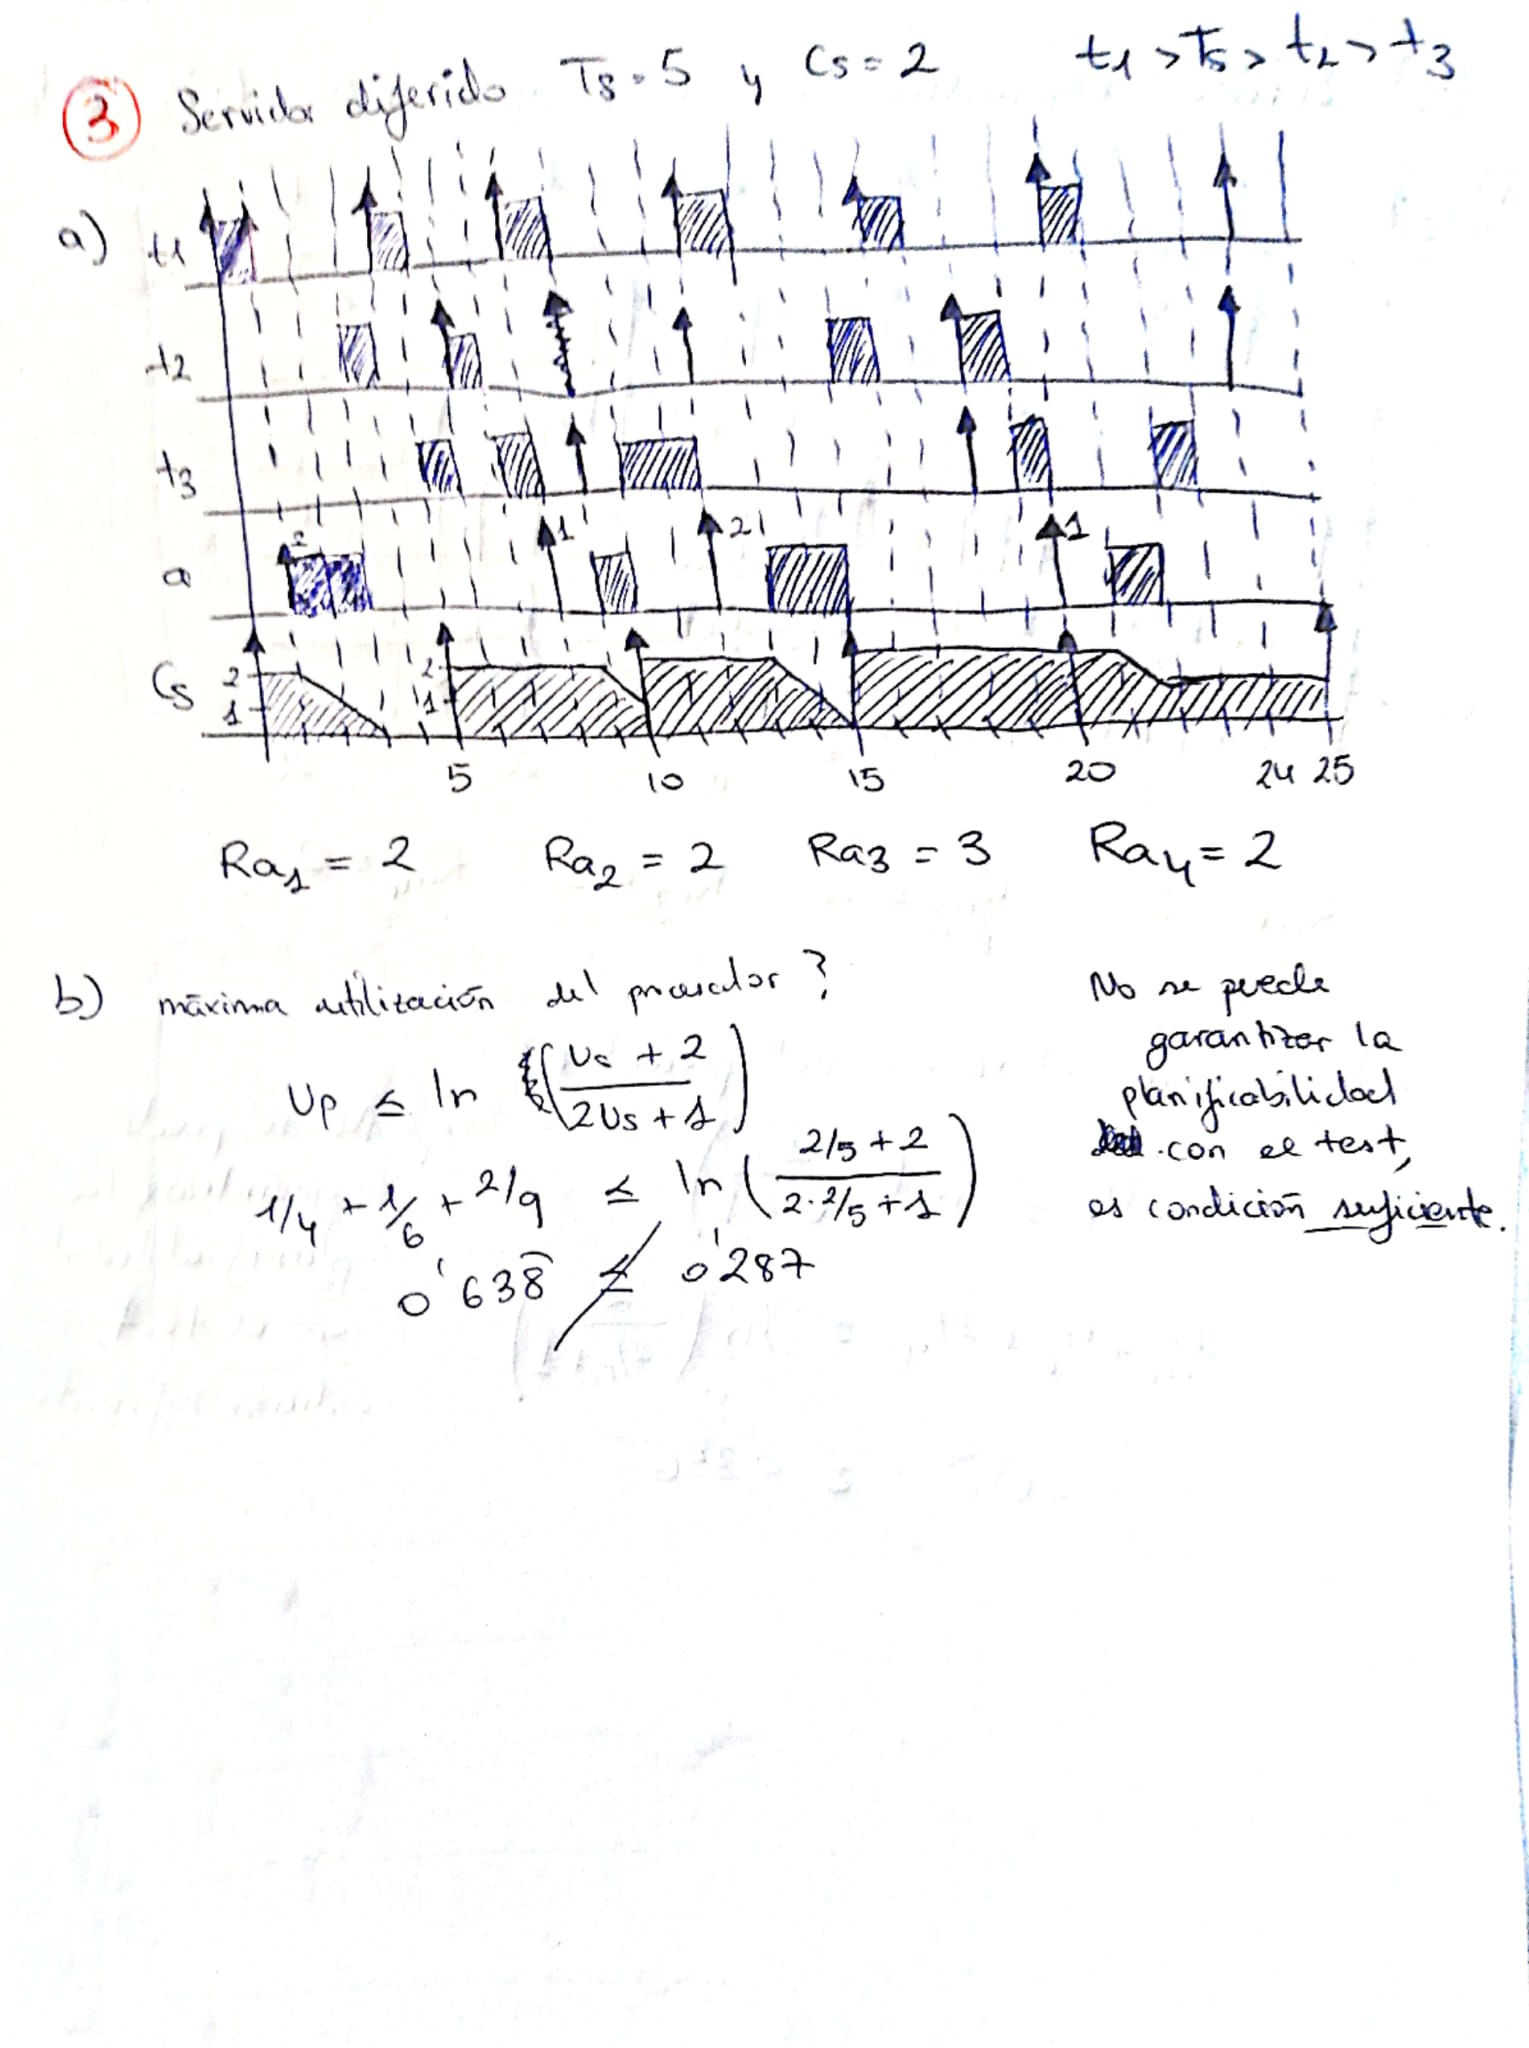 3 Servidor diferido Ts=5 y Cs=2 t1>Ts>t2>t3
a) t1
t2
t3
2 1 2 1
a
Cs 2 2
1 1
5 10 15 20 24 25
Ra1 = 2 Ra2 = 2 Ra3 = 3 Ra4 = 2
b) máxima utilización del procesador?
Up ≤ ln ((Us + 2)/(2Us + 1))
1/4 + 1/6 + 2/9 ≤ ln ((2/5 + 2)/(2·2/5 + 1))
0'638 ≰ 0'287
No se puede
garantizar la
planificabilidad
con el test,
es condición suficiente.